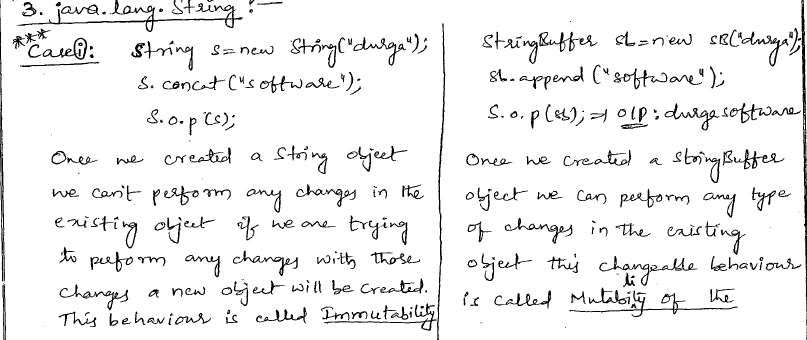 3. java.lang.String :-
*** Case(i): String s=new String("durga");
s.concat("software");
S.o.p(s);
Once we created a String object
we can't perform any changes in the
existing object if we are trying
to perform any changes with those
changes a new object will be created.
This behaviour is called Immutability
StringBuffer sb=new SB("durga");
sb.append("software");
S.o.p(sb); => O/P: durgasoftware
Once we created a StringBuffer
object we can perform any type
of changes in the existing
object this changeable behaviour
is called Mutability of the